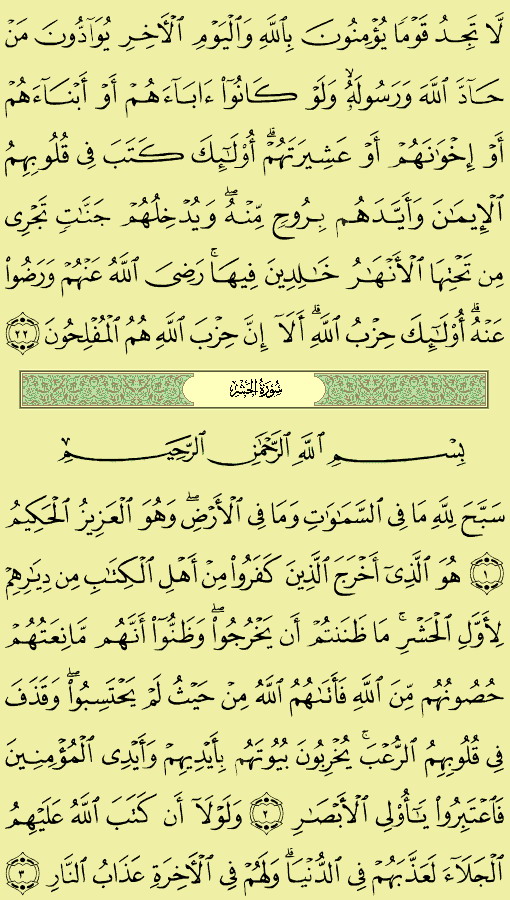 لَّا تَجِدُ قَوْمًا يُؤْمِنُونَ بِٱللَّهِ وَٱلْيَوْمِ ٱلْأَخِرِ يُوَآدُّونَ مَنْ
حَآدَّ ٱللَّهَ وَرَسُولَهُۥ وَلَوْ كَانُوٓا۟ ءَابَآءَهُمْ أَوْ أَبْنَآءَهُمْ
أَوْ إِخْوَٰنَهُمْ أَوْ عَشِيرَتَهُمْ ۚ أُو۟لَٰٓئِكَ كَتَبَ فِى قُلُوبِهِمُ
ٱلْإِيمَٰنَ وَأَيَّدَهُم بِرُوحٍ مِّنْهُ ۖ وَيُدْخِلُهُمْ جَنَّٰتٍ تَجْرِى
مِن تَحْتِهَا ٱلْأَنْهَٰرُ خَٰلِدِينَ فِيهَا ۚ رَضِىَ ٱللَّهُ عَنْهُمْ وَرَضُوا۟
عَنْهُ ۚ أُو۟لَٰٓئِكَ حِزْبُ ٱللَّهِ ۚ أَلَآ إِنَّ حِزْبَ ٱللَّهِ هُمُ ٱلْمُفْلِحُونَ ٢٢
سُورَةُ الحَشْرِ
بِسْمِ ٱللَّهِ ٱلرَّحْمَٰنِ ٱلرَّحِيمِ
سَبَّحَ لِلَّهِ مَا فِى ٱلسَّمَٰوَٰتِ وَمَا فِى ٱلْأَرْضِ ۖ وَهُوَ ٱلْعَزِيزُ ٱلْحَكِيمُ
١ هُوَ ٱلَّذِىٓ أَخْرَجَ ٱلَّذِينَ كَفَرُوا۟ مِنْ أَهْلِ ٱلْكِتَٰبِ مِن دِيَٰرِهِمْ
لِأَوَّلِ ٱلْحَشْرِ ۚ مَا ظَنَنتُمْ أَن يَخْرُجُوا۟ ۖ وَظَنُّوٓا۟ أَنَّهُم مَّانِعَتُهُمْ
حُصُونُهُم مِّنَ ٱللَّهِ فَأَتَىٰهُمُ ٱللَّهُ مِنْ حَيْثُ لَمْ يَحْتَسِبُوا۟ ۖ وَقَذَفَ
فِى قُلُوبِهِمُ ٱلرُّعْبَ ۚ يُخْرِبُونَ بُيُوتَهُم بِأَيْدِيهِمْ وَأَيْدِى ٱلْمُؤْمِنِينَ
فَٱعْتَبِرُوا۟ يَٰٓأُو۟لِى ٱلْأَبْصَٰرِ ٢ وَلَوْلَآ أَن كَتَبَ ٱللَّهُ عَلَيْهِمُ
ٱلْجَلَآءَ لَعَذَّبَهُمْ فِى ٱلدُّنْيَا ۖ وَلَهُمْ فِى ٱلْأَخِرَةِ عَذَابُ ٱلنَّارِ ٣